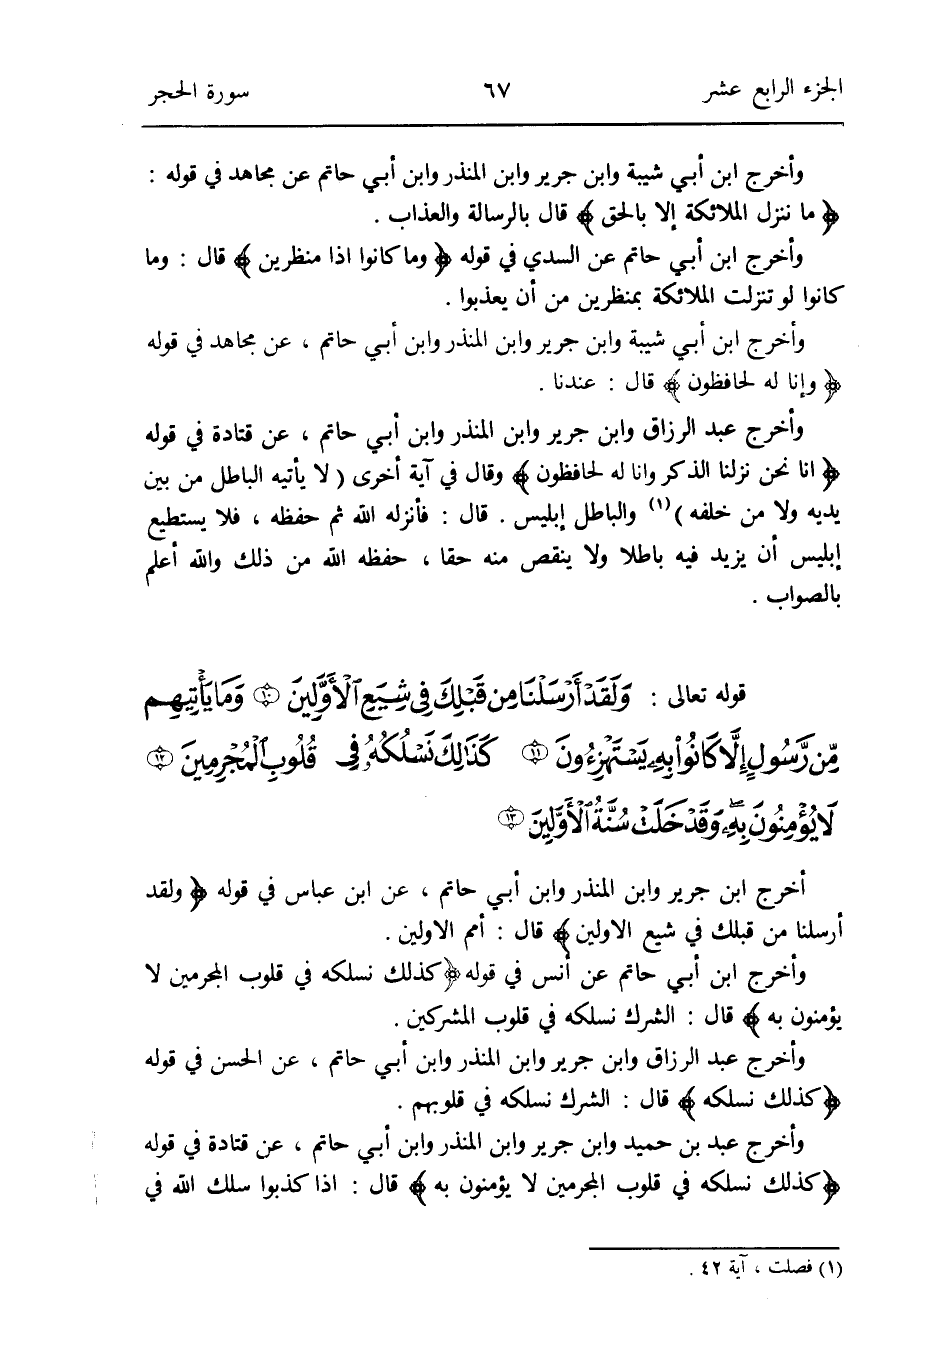 الجزء الرابع عشر ٦٧ سورة الحجر
وأخرج ابن أبي شيبة وابن جرير وابن المنذر وابن أبي حاتم عن مجاهد في قوله :
﴿ ما ننزل الملائكة إلا بالحق ﴾ قال بالرسالة والعذاب .
وأخرج ابن أبي حاتم عن السدي في قوله ﴿ وما كانوا اذا منظرين ﴾ قال : وما
كانوا لو تنزلت الملائكة بمنظرين من أن يعذبوا .
وأخرج ابن أبي شيبة وابن جرير وابن المنذر وابن أبي حاتم ، عن مجاهد في قوله
﴿ وإنا له لحافظون ﴾ قال : عندنا .
وأخرج عبد الرزاق وابن جرير وابن المنذر وابن أبي حاتم ، عن قتادة في قوله
﴿ انا نحن نزلنا الذكر وانا له لحافظون ﴾ وقال في آية أخرى ( لا يأتيه الباطل من بين
يديه ولا من خلفه ) (١) والباطل إبليس . قال : فأنزله الله ثم حفظه ، فلا يستطيع
إبليس أن يزيد فيه باطلا ولا ينقص منه حقا ، حفظه الله من ذلك والله أعلم
بالصواب .
قوله تعالى : وَلَقَدْ أَرْسَلْنَا مِن قَبْلِكَ فِي شِيَعِ ٱلْأَوَّلِينَ ۝١٠ وَمَا يَأْتِيهِم
مِّن رَّسُولٍ إِلَّا كَانُوا۟ بِهِۦ يَسْتَهْزِءُونَ ۝١١ كَذَٰلِكَ نَسْلُكُهُۥ فِى قُلُوبِ ٱلْمُجْرِمِينَ ۝١٢
لَا يُؤْمِنُونَ بِهِۦ ۖ وَقَدْ خَلَتْ سُنَّةُ ٱلْأَوَّلِينَ ۝١٣
أخرج ابن جرير وابن المنذر وابن أبي حاتم ، عن ابن عباس في قوله ﴿ ولقد
أرسلنا من قبلك في شيع الاولين ﴾ قال : أمم الاولين .
وأخرج ابن أبي حاتم عن أنس في قوله ﴿ كذلك نسلكه في قلوب المجرمين لا
يؤمنون به ﴾ قال : الشرك نسلكه في قلوب المشركين .
وأخرج عبد الرزاق وابن جرير وابن المنذر وابن أبي حاتم ، عن الحسن في قوله
﴿ كذلك نسلكه ﴾ قال : الشرك نسلكه في قلوبهم .
وأخرج عبد بن حميد وابن جرير وابن المنذر وابن أبي حاتم ، عن قتادة في قوله
﴿ كذلك نسلكه في قلوب المجرمين لا يؤمنون به ﴾ قال : اذا كذبوا سلك الله في
(١) فصلت ، آية ٤٢ .